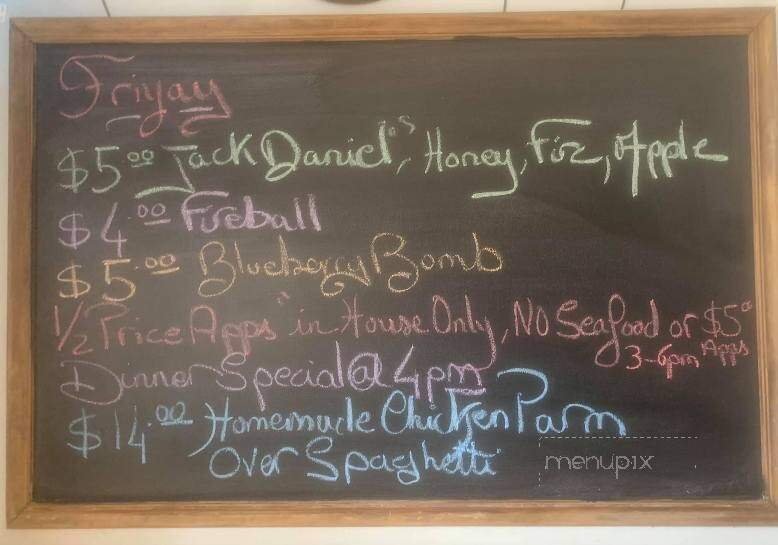 Friyay
$5.00 Jack Daniel's, Honey, Fire, Apple
$4.00 Fireball
$5.00 Blueberry Bomb
1/2 Price Apps "in House Only, NO Seafood or $5 Apps
3-6pm
Dinner Special @ 4pm
$14.00 Homemade Chicken Parm
Over Spaghetti
menupix